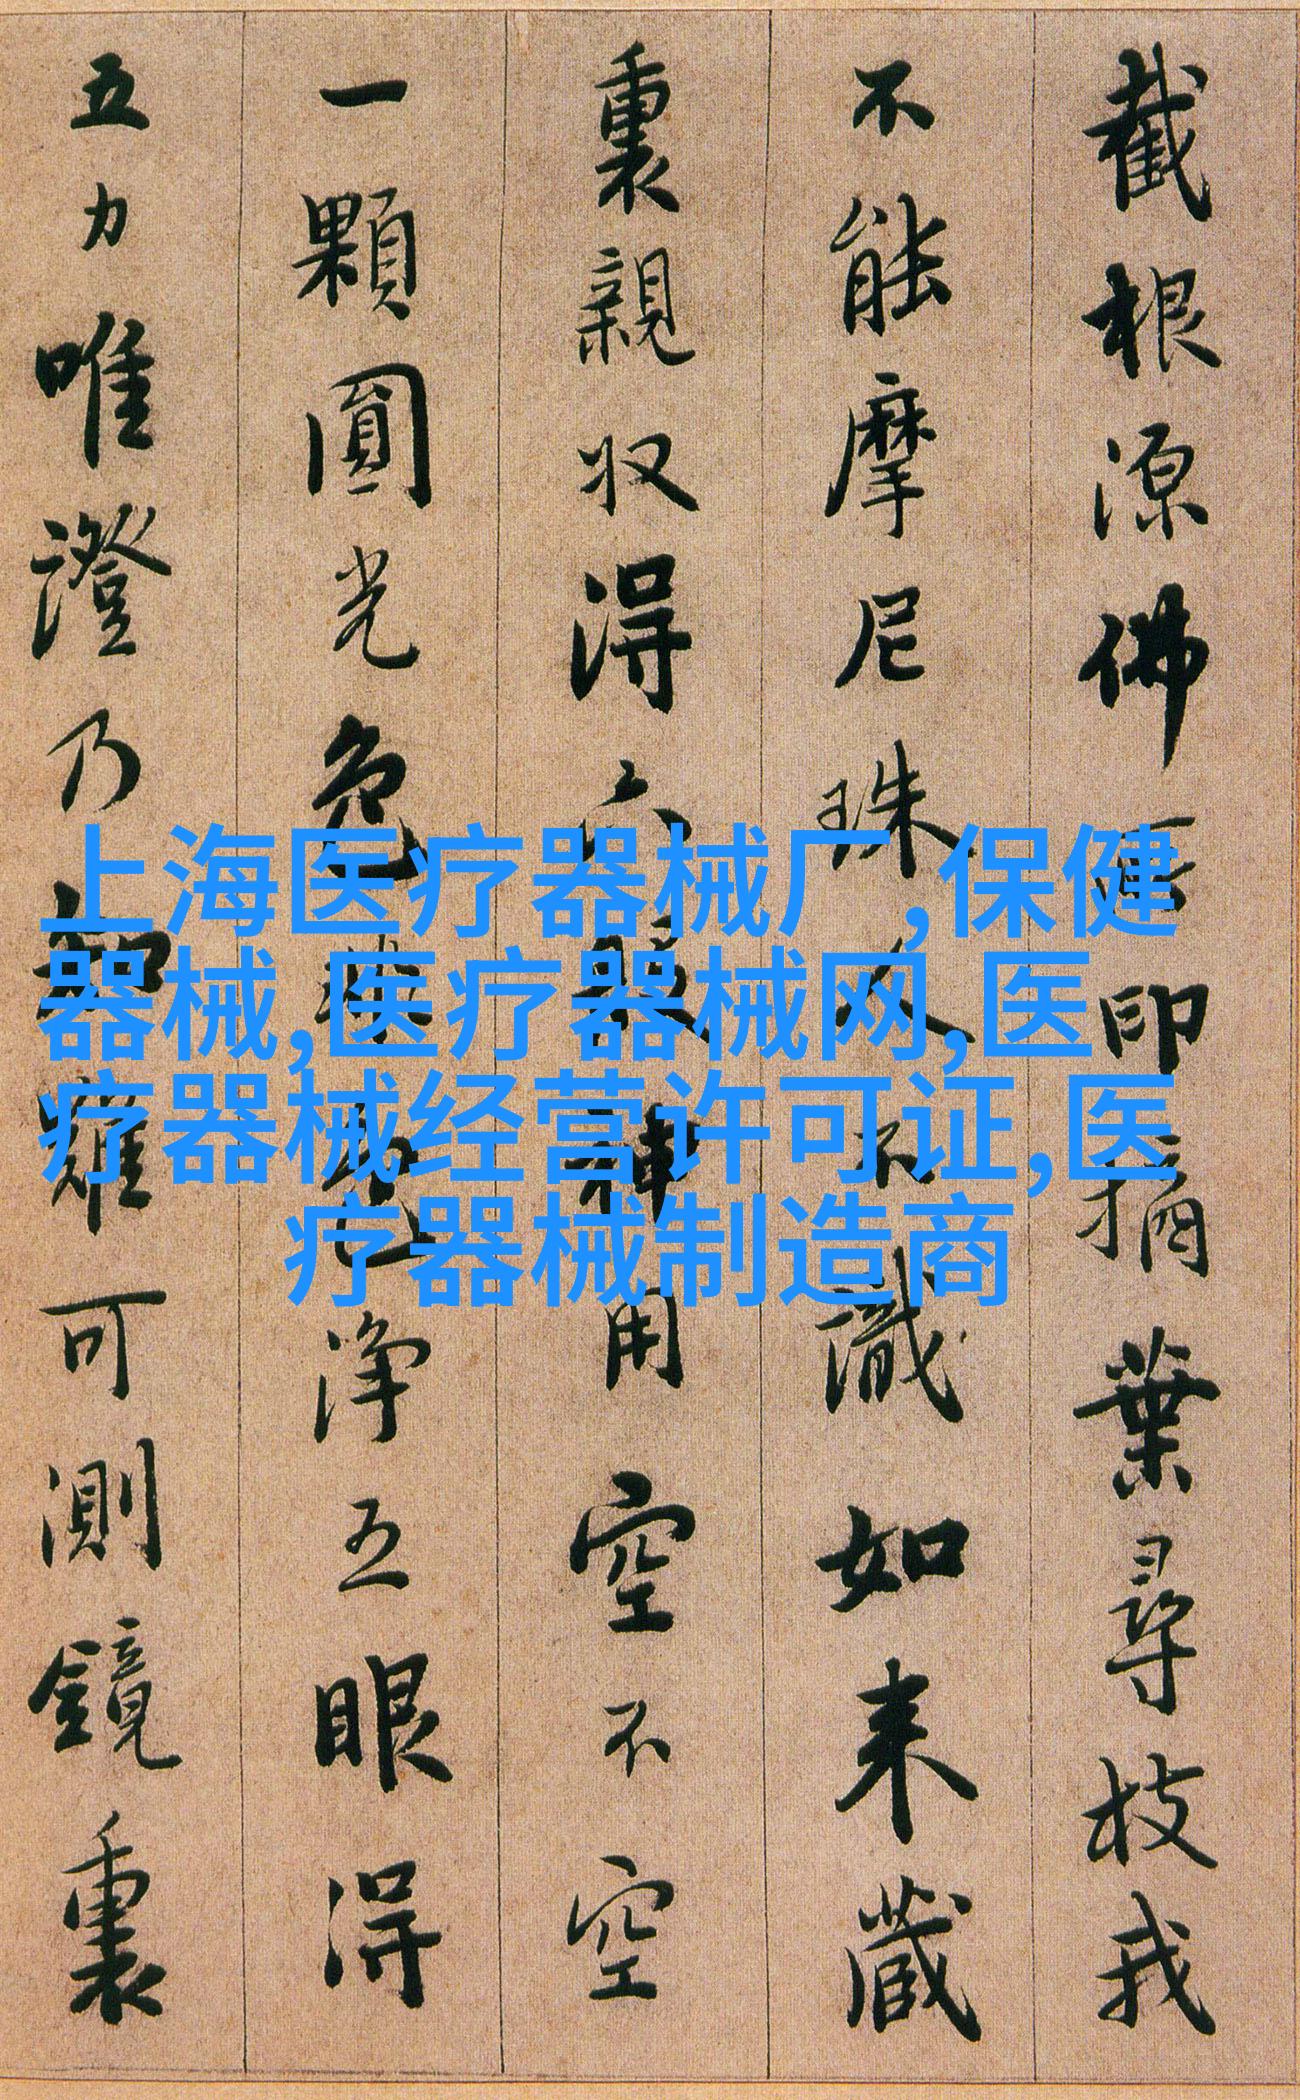 截根源佛所印摘葉尋枝我
不能摩尼珠人不識如来藏
裏親収得六般神用空不空
一顆圓光色非色淨五眼得
五力唯證乃知難可測鏡裏
上海医疗器械厂,保健
器械,医疗器械网,医
疗器械经营许可证,医
疗器械制造商